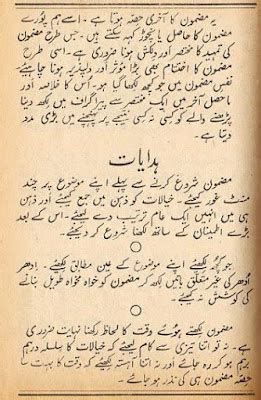 یہ مضمون کا آخری حصّہ ہوتا ہے۔ اسے ہم پُورے
مضمون کا حاصل یا نچوڑ کہہ سکتے ہیں۔ جس طرح مضمون
کی تمہید کا مختصر اور دلکش ہونا ضروری ہے۔ اسی طرح
مضمون کا اختتام بھی بڑا مؤثر اور دلپذیر ہونا چاہیئے۔
نفسِ مضمون میں جو کچھ لکھا گیا ہو۔ اُس کا خلاصہ اور
ماحصل آخر میں ایک مختصر سے پیراگراف میں لکھ دینا
پڑھنے والے کو کسی نہ کسی نتیجے پر پہنچنے میں بڑی مدد
دیتا ہے۔
ہدایات
مضمون شروع کرنے سے پہلے اپنے موضوع پر چند
منٹ غور کیجئے۔ خیالات کو ذہن میں جمع کیجئے اور ذہن
ہی میں انہیں ایک عام ترتیب دے لیجئے۔ اس کے بعد
بڑے اطمینان کے ساتھ لکھنا شروع کر دیجئے۔
جو کچھ لکھئے اپنے موضوع کے عین مطابق لکھئے۔ اِدھر
اُدھر کی غیر متعلق باتیں لکھ کر مضمون کو خواہ مخواہ طویل بنانے
کی کوشش نہ کیجئے۔
مضمون لکھتے ہوئے وقت کا لحاظ رکھنا نہایت ضروری
ہے۔ نہ تو اتنا تیزی سے کام لیجئے کہ خیالات کا سلسلہ درہم
برہم ہو کر رہ جائے اور نہ اتنا آہستہ لکھئے کہ وقت کا بہت سا
حصّہ مضمون ہی کی نذر ہو جائے۔